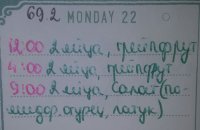 69 2 MONDAY 22
12:00 2 яйца, грейпфрут
4:00 2 яйца, грейпфрут
9:00 2 яйца, салат (по-
мидор, огурец, латук)